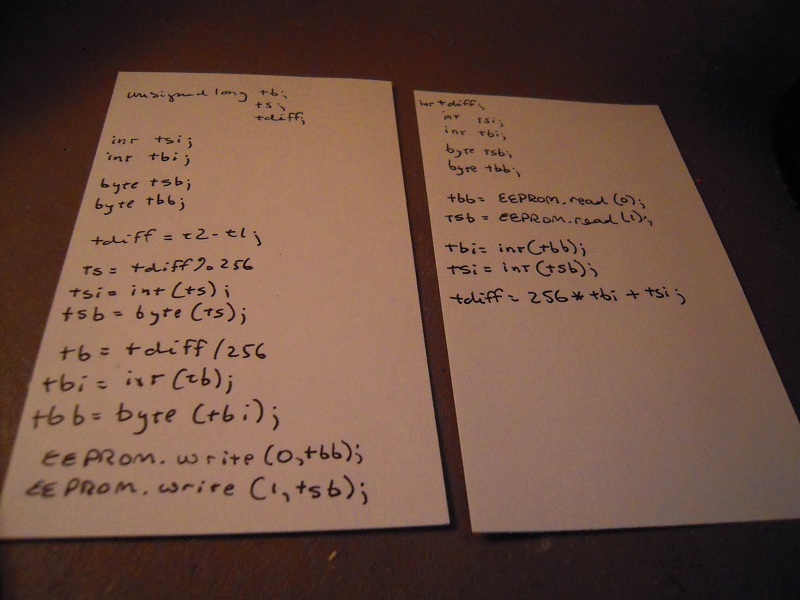 unsigned long tb;
ts;
tdiff;
int tsi;
int tbi;
byte tsb;
byte tbb;
tdiff = t2-t1;
ts = tdiff % 256
tsi = int (ts);
tsb = byte (ts);
tb = tdiff / 256
tbi = int (tb);
tbb = byte (tbi);
EEPROM.write (0,tbb);
EEPROM.write (1,tsb);
int tdiff;
int tsi;
int tbi;
byte tsb;
byte tbb;
tbb = EEPROM.read (0);
tsb = EEPROM.read (1);
tbi = int (tbb);
tsi = int (tsb);
tdiff = 256 * tbi + tsi;